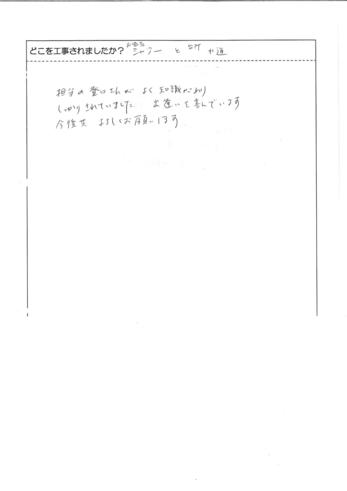 どこを工事されましたか？ シャワー と
担当の登口さんが よく知識があり
しっかりされていました 出逢いを喜んでいます
今後共 よろしくお願いします